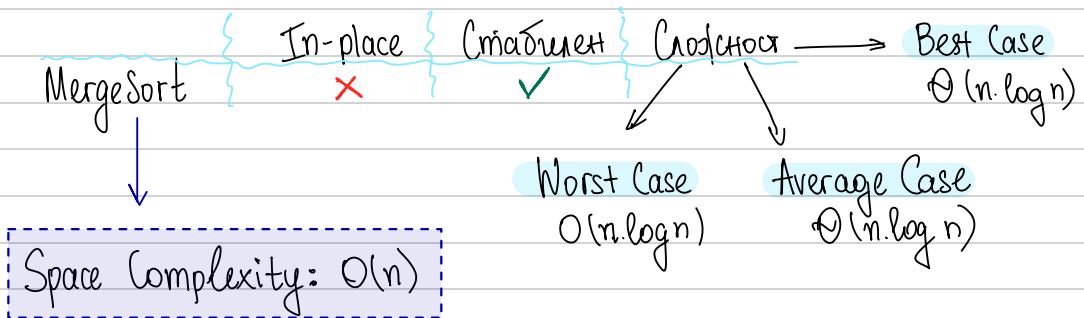 In-place Стабилен Сложност Best Case
MergeSort ✗ ✓ Θ(n.logn)
Worst Case Average Case
O(n.logn) Θ(n.logn)
Space Complexity: Θ(n)